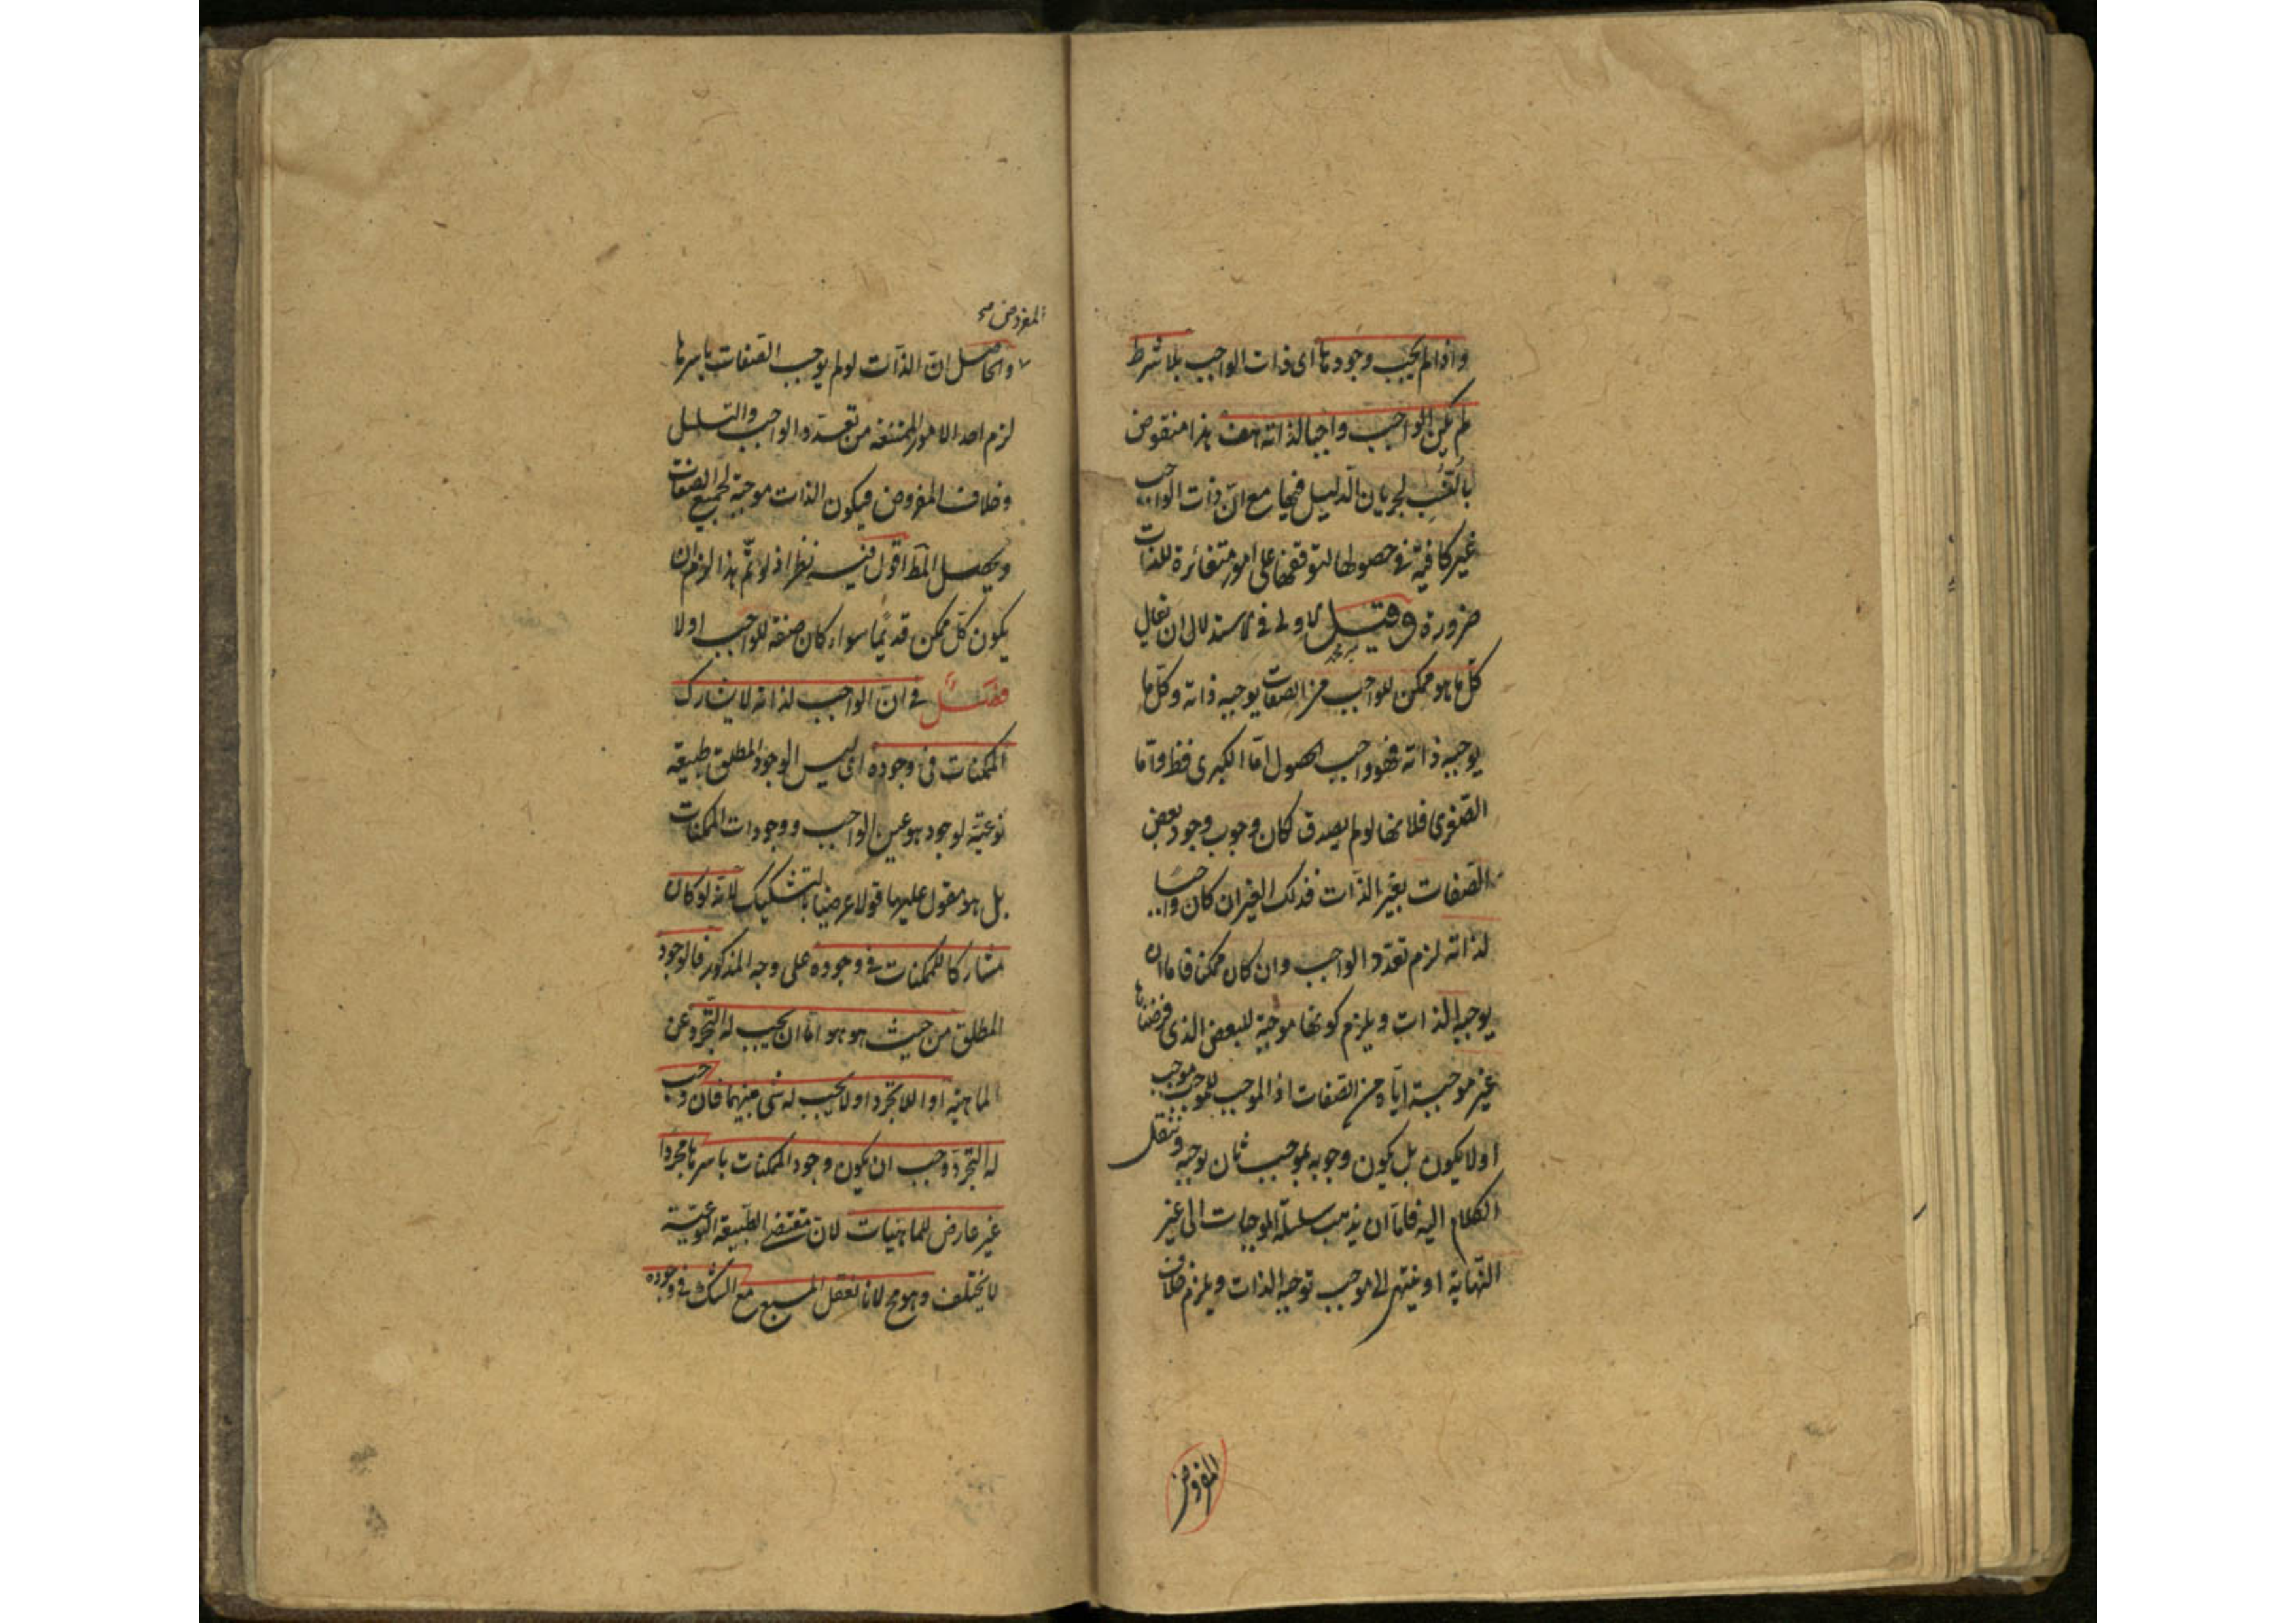 واذا لم يجب وجودها اى ذات الواجب بلا شرط
لم يكن الواجب واجبا لذاته هف هذا منقوض
بالنسب لجريان الدليل فيها مع ان ذات الواجب
غير كافية فى حصولها لتوقفها على امور متغائرة للذات
ضرورة وقيل الاولى فى الاستدلال ان يقال
كل ما هو ممكن للواجب من الصفات يوجبه ذاته وكل ما
يوجبه ذاته فهو واجب الحصول اما الكبرى فظ واما
الصغرى فلانها لو لم يصدق لكان وجوب وجود بعض
الصفات بغير الذات فذلك الغير ان كان واجبا
لذاته لزم تعدد الواجب وان كان ممكنا فاما ان
يوجبه الذات ويلزم كونها موجبة للبعض الذى فرضناها
غير موجبة اياه من الصفات اذ الموجب للموجب موجب
اولا يكون بل يكون وجوبه بموجب ثان يوجبه وننقل
الكلام اليه فاما ان يذهب سلسلة الموجبات الى غير
النهاية او ينتهى الى موجب توجبه الذات ويلزم خلاف
المفروض
المفروض صح
والحاصل ان الذات لو لم يوجب الصفات باسرها
لزم احد الامور الممتنعة من تعدد الواجب والتسلسل
وخلاف المفروض فيكون الذات موجبة لجميع الصفات
ويحصل المط اقول فيه نظر اذ لو تم هذا لزم ان
يكون كل ممكن قديما سواء كان صفة للواجب اولا
فصل فى ان الواجب لذاته لا يشارك
الممكنات فى وجوده اى ليس الوجود المطلق طبيعة
نوعية لوجود هو عين الواجب ووجودات الممكنات
بل هو مقول عليهما قولا عرضيا بالتشكيك لانه لو كان
مشاركا للممكنات فى وجوده على وجه المذكور فالوجود
المطلق من حيث هو هو اما ان يجب له التجرد عن
الماهية او اللاتجرد او لا يجب له شئ منهما فان وجب
له التجرد وجب ان يكون وجود الممكنات باسرها مجردا
غير عارض للماهيات لان مقتضى الطبيعة النوعية
لا يختلف وهو مح لانا نعقل المسبع مع الشك فى وجوده